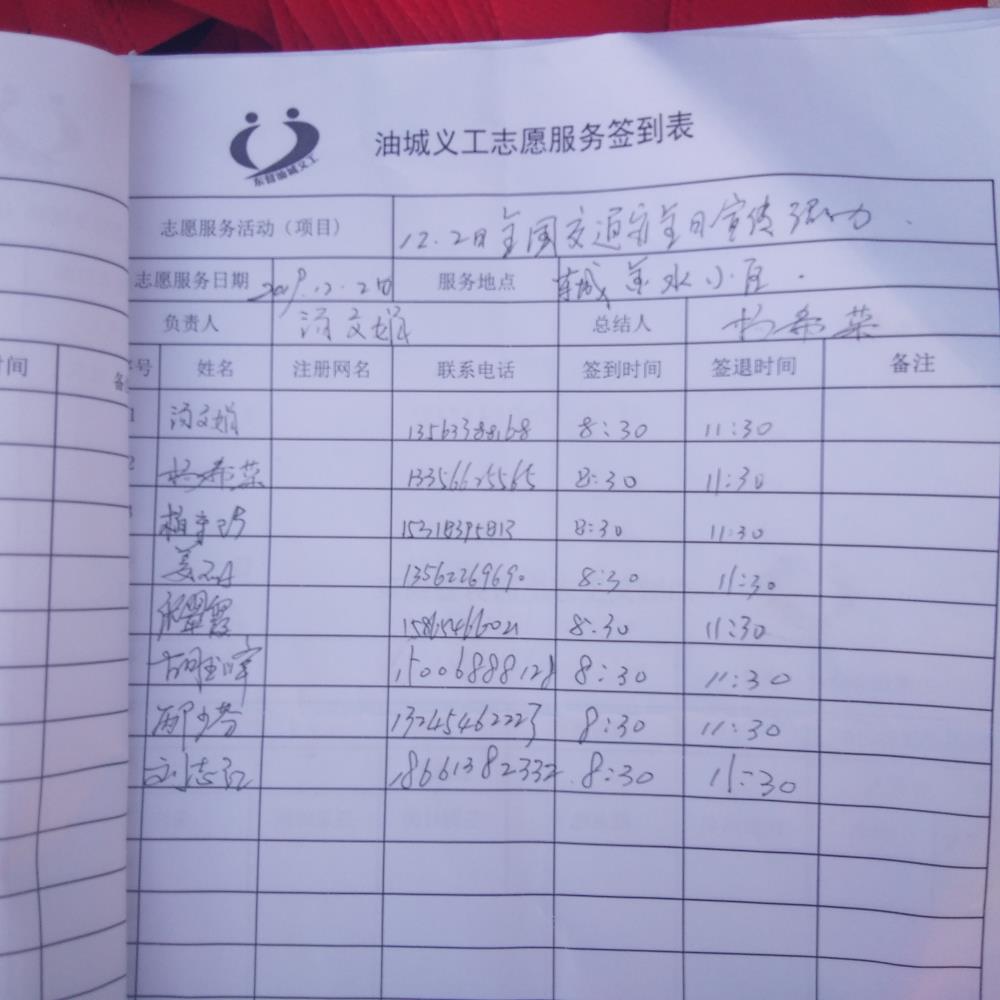 东营油城义工
油城义工志愿服务签到表
志愿服务活动（项目） 12.2日全国交通安全日宣传活动
志愿服务日期 2019.12.2日 服务地点 东城 水小区.
负责人 汤文娟 总结人 杨希菜
号 姓名 注册网名 联系电话 签到时间 签退时间 备注
1 汤文娟 13563388168 8:30 11:30
2 杨希菜 13356625565 8:30 11:30
3 15318395813 8:30 11:30
13562269690 8:30 11:30
翠霞 15865466021 8:30 11:30
胡 15006888128 8:30 11:30
邴少芳 13245462223 8:30 11:30
刘志红 18661382332 8:30 11:30
时间 备